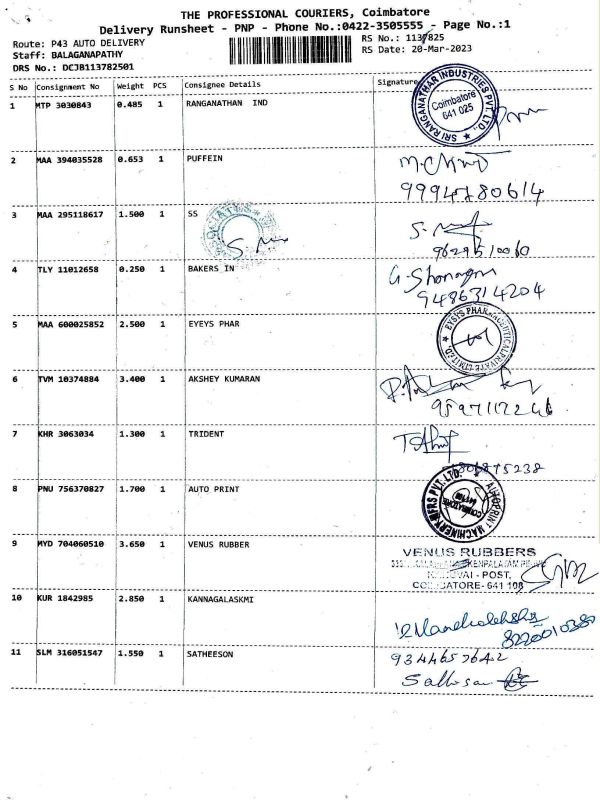 THE PROFESSIONAL COURIERS, Coimbatore
Delivery Runsheet - PNP - Phone No.:0422-3505555 - Page No.:1
Route: P43 AUTO DELIVERY
RS No.: 1137825
Staff: BALAGANAPATHY
RS Date: 20-Mar-2023
DRS No.: DCJB113782501
S No Consignment No Weight PCS Consignee Details Signature
1 MTP 3030843 0.485 1 RANGANATHAN IND
SRI RANGANATHAR INDUSTRIES PVT. LTD.
Coimbatore
641 025
2 MAA 394035528 0.653 1 PUFFEIN
9994280614
3 MAA 295118617 1.500 1 SS
9629510010
4 TLY 11012658 0.250 1 BAKERS IN
9486314204
5 MAA 600025852 2.500 1 EYEYS PHAR
EYSYS PHARMACEUTICAL PRIVATE LIMITED.
6 TVM 10374884 3.400 1 AKSHEY KUMARAN
7 KHR 3063034 1.300 1 TRIDENT
8 PNU 756370827 1.700 1 AUTO PRINT
AUTOPRINT MACHINERY MFRS PVT. LTD.
COIMBATORE
9 MYD 704060510 3.650 1 VENUS RUBBER
VENUS RUBBERS
POST,
COIMBATORE- 641 108
10 KUR 1842985 2.850 1 KANNAGALASKMI
8220010380
11 SLM 316051547 1.550 1 SATHEESON
9344657642